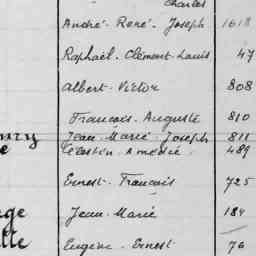 Charles
André-René-Joseph 1618
Raphaël-Clément-Louis 47
Albert-Victor 808
Francois-Auguste 810
Jean-Marie-Joseph 811
Célestin-Amédée 489
Ernest-Francais 725
Jean-Marie 184
Eugène-Ernest 76